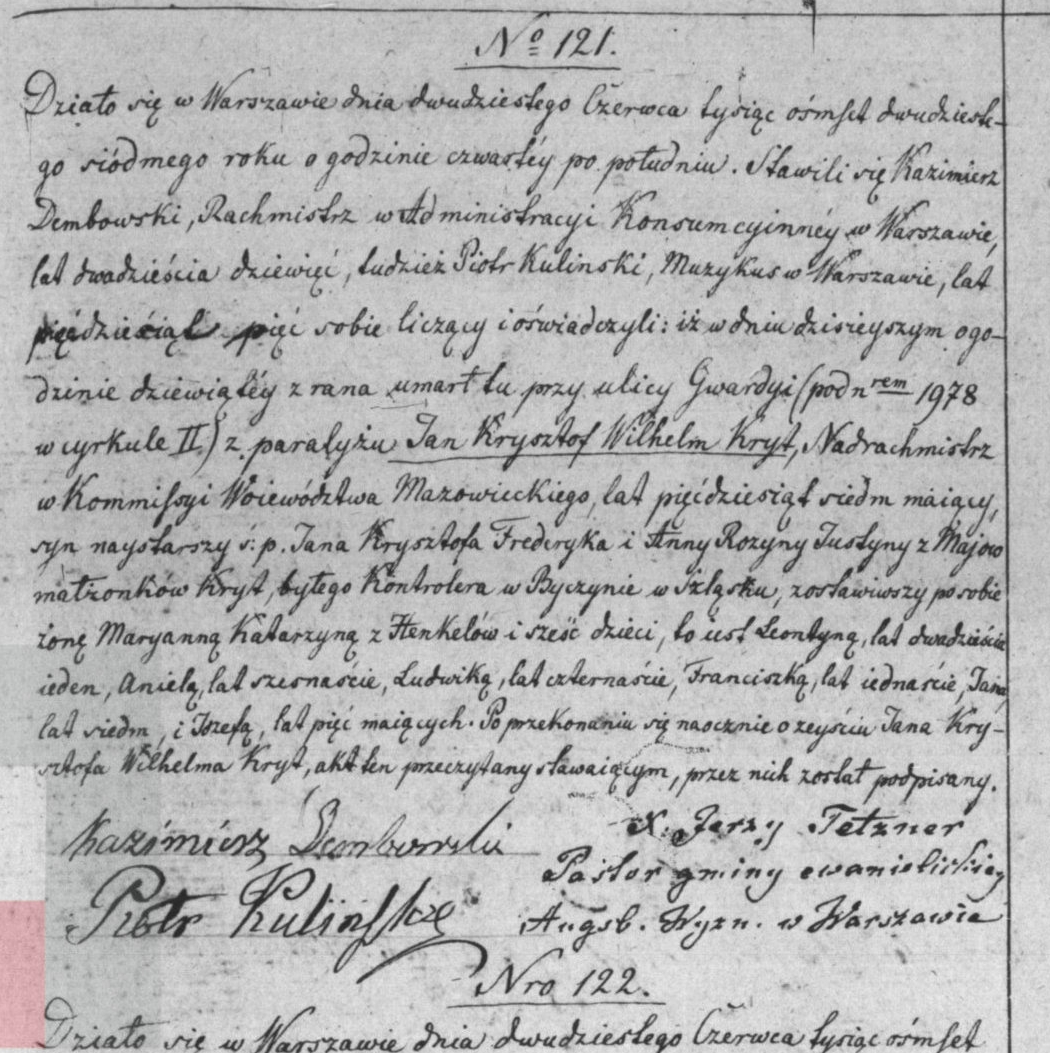 No 121.
Działo się w Warszawie dnia dwudziestego Czerwca tysiąc ośmset dwudzieste-
go siódmego roku o godzinie czwartéy po południu. Stawili się Kazimierz
Dembowski, Rachmistrz w Administracyi Konsumcyinnéy w Warszawie,
lat dwadzieścia dziewięć, tudzież Piotr Kulinski, Muzykus w Warszawie, lat
pięćdziesiąt pięć sobie liczący i oświadczyli: iż w dniu dzisieyszym o go-
dzinie dziewiątéy z rana umarł tu przy ulicy Gwardyi (pod nrem 1978
w cyrkule II.) z paraliżu Jan Krysztof Wilhelm Kryt, Nadrachmistrz
w Kommissyi Woiewództwa Mazowieckiego, lat pięćdziesiąt siedm maiący,
syn naystarszy ś: p. Jana Krysztofa Frederyka i Anny Rozyny Justyny z Majow
małzonków Kryt, byłego Kontrolera w Byczynie w Szląsku, zostawiwszy po sobie
żonę Maryanną Katarzyną z Henkelów i sześć dzieci, to iest Leontyną, lat dwadzieścia
ieden, Anielą, lat szesnaście, Ludwiką, lat czternaście, Franciszką, lat iednaście, Jana
lat siedm, i Jozefą, lat pięć maiących. Po przekonaniu się naocznie o zeyściu Jana Kry-
sztofa Wilhelma Kryt, akt ten przeczytany stawaiącym, przez nich został podpisany.
Kazimierz Dembowski
X. Jerzy Tetzner
Pastor gminy ewanielickiey
Piotr Kulinski
Augsb. Wyzn. w Warszawie
Nro 122.
Działo się w Warszawie dnia dwudziestego Czerwca tysiąc ośmset